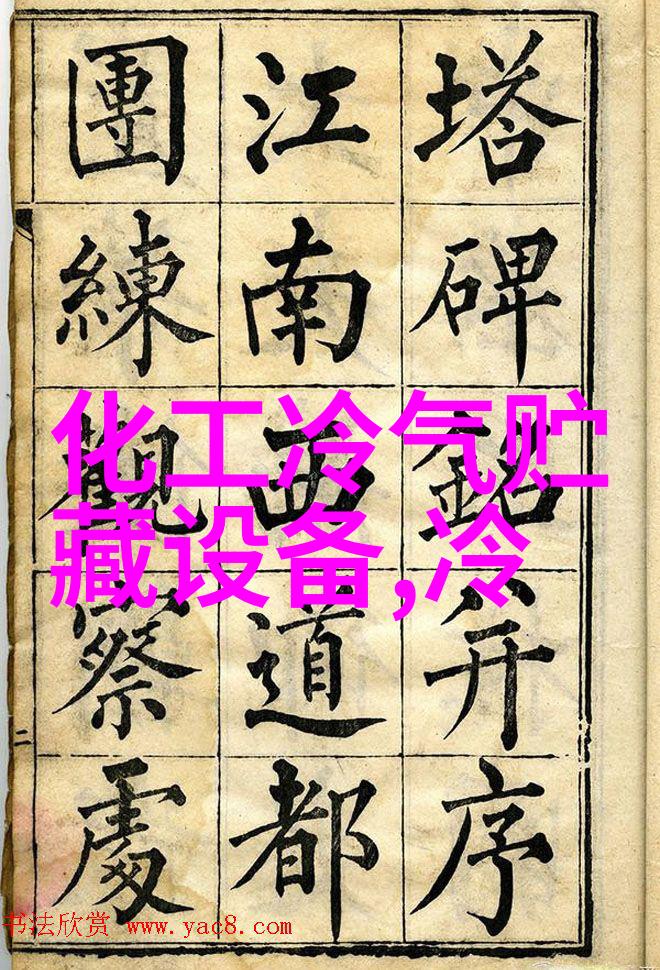 塔碑銘并序
江南西道都
團練觀察處
化工冷气贮
藏设备,冷
二
书法欣赏 www.yac8.com